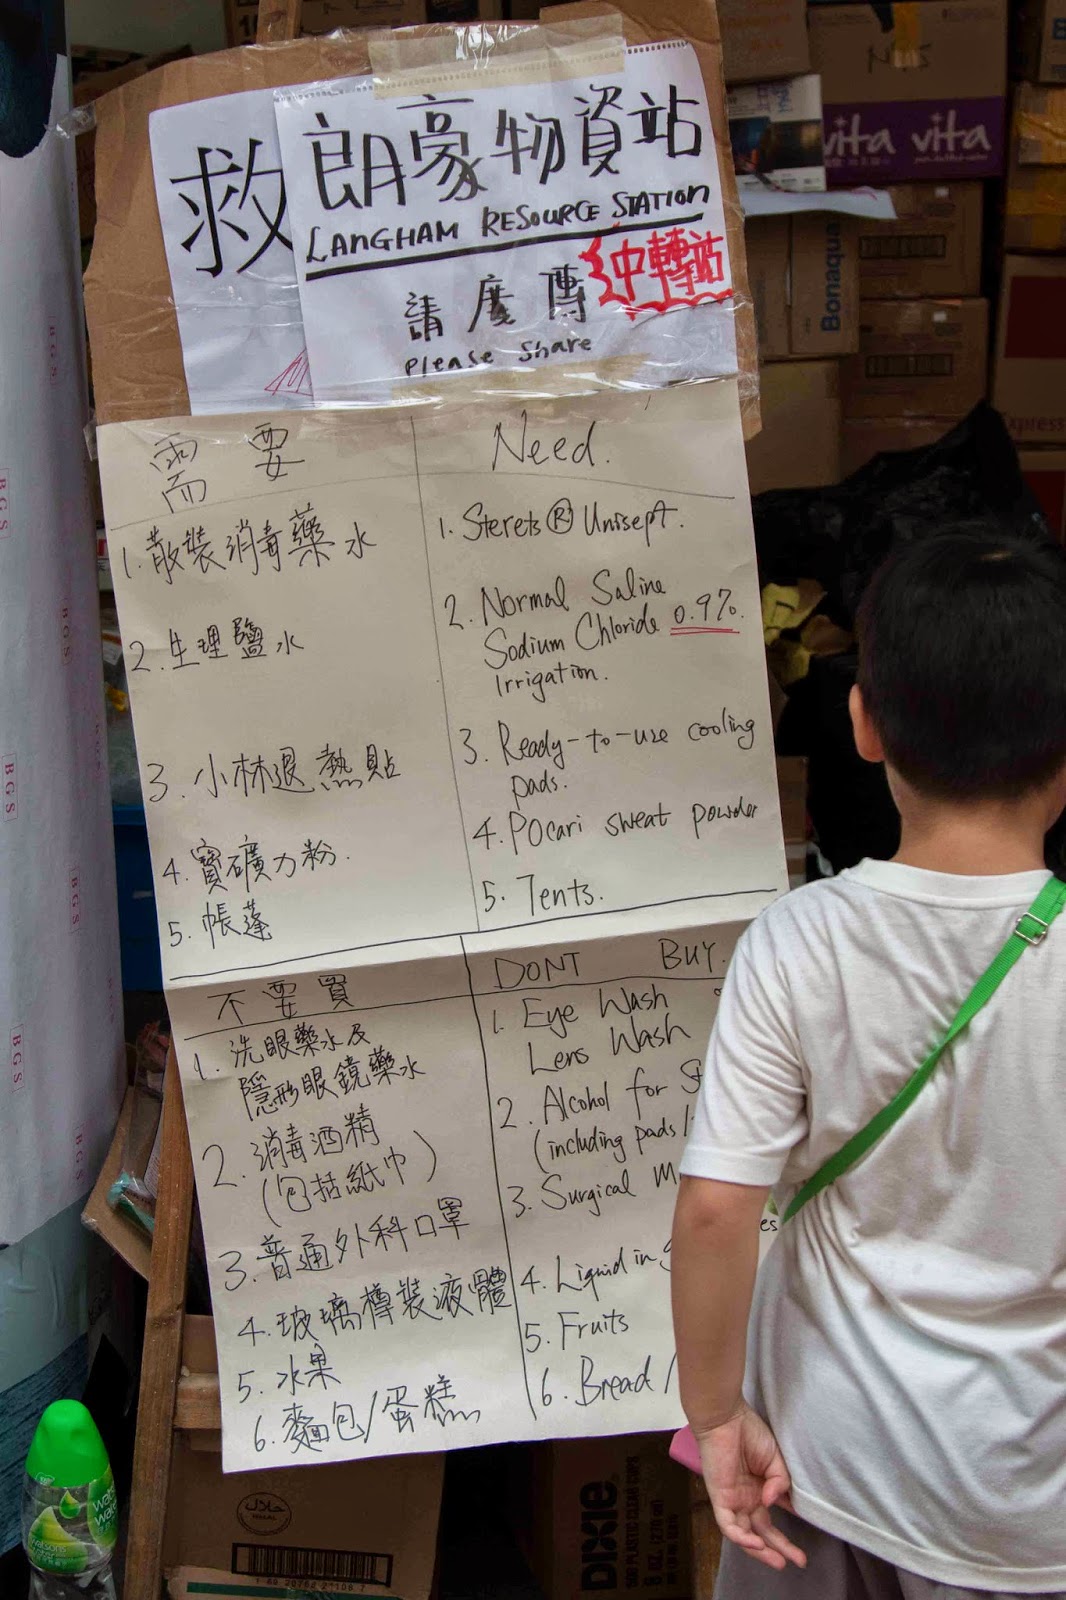 救
朗豪物資站
LANGHAM RESOURCE STATION
中轉站
請廣傳
please share
需要
1. 散裝消毒藥水
2. 生理鹽水
3. 小林退熱貼
4. 寶礦力粉.
5. 帳蓬
Need.
1. Sterets® Unisept.
2. Normal Saline
Sodium Chloride 0.9%.
Irrigation.
3. Ready-to-use cooling
pads.
4. Pocari sweat powder
5. Tents.
不要買
1. 洗眼藥水及
隱形眼鏡藥水
2. 消毒酒精
(包括紙巾)
3. 普通外科口罩
4. 玻璃樽裝液體
5. 水果
6. 麵包/蛋糕
DONT BUY.
1. Eye Wash
Lens Wash
2. Alcohol for
(including pads/
3. Surgical
4. Liquid in
5. Fruits
6. Bread/
vita vita
Bonaqua
express
BGS
BGS
BGS
BGS
BGS
watsons
HALAL
DIXIE